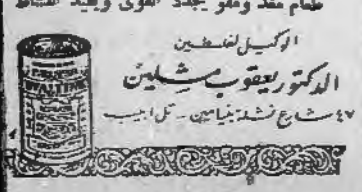 طعام مغذ ومقو يجدد القوى ويعيد النشاط
الوكيل لفلسطين
الدكتور يعقوب مشلين
٤٧ شارع نحلة بنيامين - تل ابيب
OVALTINE